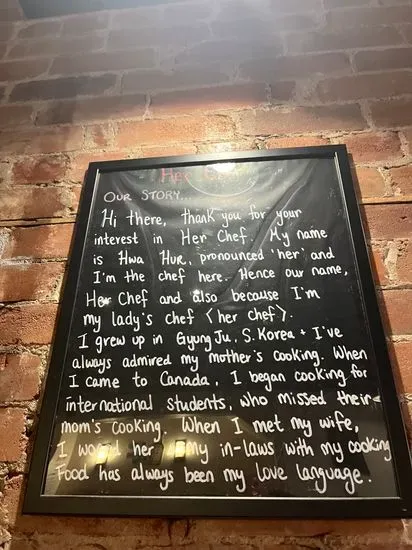 OUR STORY...
Hi there, thank you for your
interest in Her Chef. My name
is Hwa Hur, pronounced 'her' and
I'm the chef here. Hence our name,
Her Chef and also because I'm
my lady's chef <her chef>.
I grew up in GyungJu, S.Korea + I've
always admired my mother's cooking. When
I came to Canada, I began cooking for
international students, who missed their
mom's cooking. When I met my wife,
I her my in-laws with my cooking
Food has always been my love language.